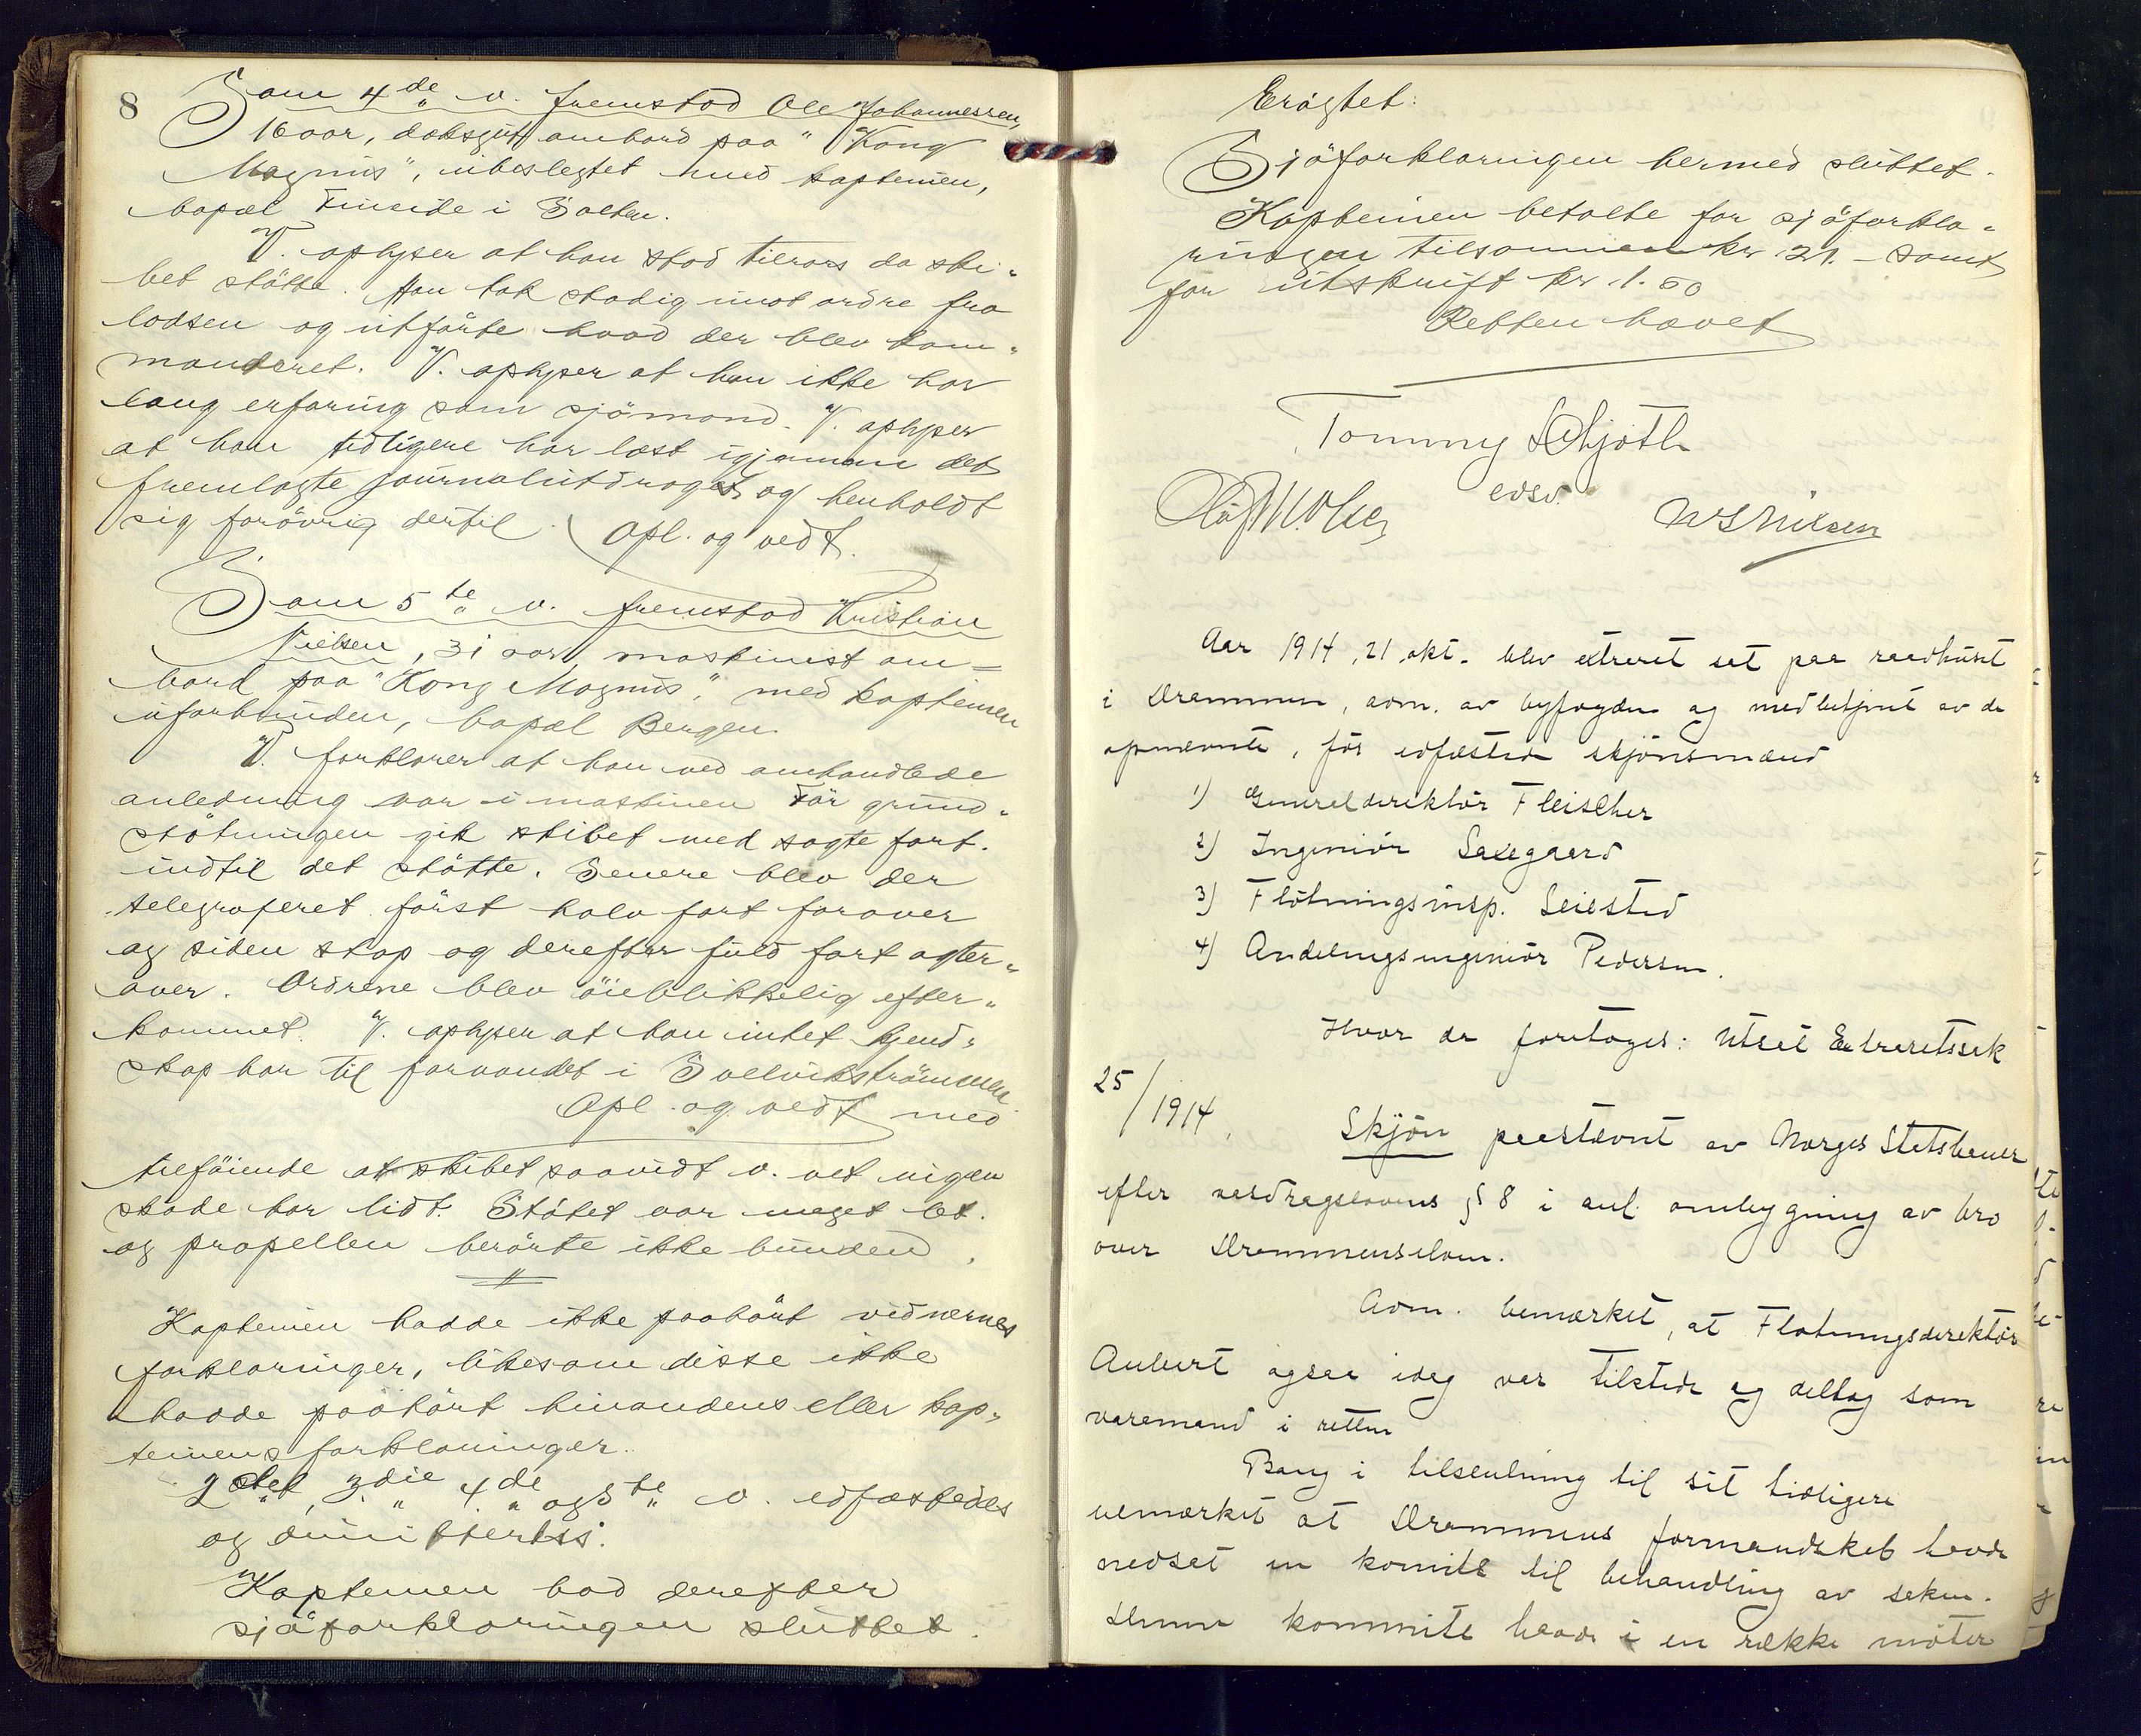 8
Som 4de v. fremstod Ole Johannessen,
16 aar, dæksgut ombord paa "Kong
Magnus", ubeslegtet med kapteinen,
bopæl i Salten.
V. oplyser at han stod tilrors da ski-
bet støtte. Han tok stadig imot ordre fra
lodsen og utførte hvad der blev kom-
manderet. V. oplyser at han ikke har
lang erfaring som sjømand. V. oplyser
at han tidligere har læst igjennem det
fremlagte journalutdrag og henholdt
sig forøvrig dertil. Opl. og vedt.
Som 5te v. fremstod Kristian
Nielsen, 31 aar, maskinist om-
bord paa "Kong Magnus," med kapteinen
uforbunden, bopæl Bergen.
V. forklarer at han ved omhandlede
anledning var i maskinen. Før grund-
støtningen gik skibet med sagte fart.
indtil det støtte. Senere blev der
telegraferet først halv fart forover
og siden stop og derefter fuld fart agter-
over. Ordrene blev øieblikkelig efter-
kommet. V. oplyser at han intet kjend-
skap har til farvandet i Svelvikstrømmen.
Opl. og vedt med
tilføiende at skibet saavidt v. vet ingen
skade har lidt. Støtet var meget let.
og propellen berørte ikke bunden.
Kapteinen hadde ikke paahørt vidnernes
forklaringer, likesom disse ikke
hadde paahørt hinandens eller kap-
teinens forklaringer.
2det, 3die, 4de og 5te v. edfæstedes
og dimittertes.
Kapteinen bad derefter
sjøforklaringen sluttet.
Eragtet:
Sjøforklaringen hermed sluttet.
Kapteinen betalte for sjøforkla-
ringen tilsammen kr 21. – samt
for utskrift kr 1.50
Retten hævet
Tommy Schjøth
edsv.
Olaf M. Olsen
Nilsen
Aar 1914, 21 okt. blev extraret sat paa raadhuset
i Drammen, adm. av byfogden og medbetjent av de
opnævnte, før edfæstede skjønsmænd
1) Generaldirektør Fleischer
2) Ingeniør Saxegaard
3) Fløtningsinsp. Seiersted
4) Avdelingsingeniør Pedersen.
Hvor da foretoges: Utsat Extraretssak
25/1914.
Skjøn paastævnt av Norges Statsbaner
efter vasdragslovens § 8 i anl. ombygning av bro
over Drammenselven.
Adm. bemerket, at Fløtningsdirektør
Aubert ogsaa idag var tilstede og deltog som
varamand i retten
Bang i tilslutning til sit tidligere
bemerket at Drammens formandskab havde
nedsat en komite til behandling av saken.
Denne kommite havde i en række møter